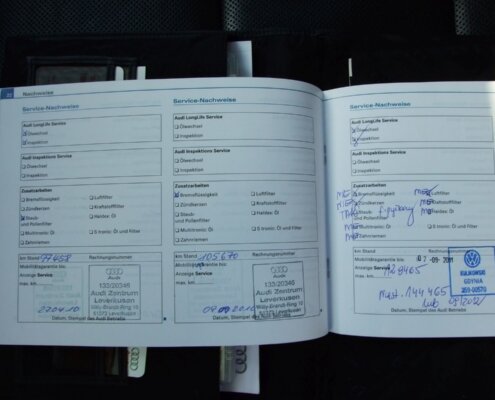 22 Nachweise
Service-Nachweise
Audi LongLife Service
Ölwechsel
Inspektion
Audi Inspektions Service
Ölwechsel
Inspektion
Zusatzarbeiten
Bremsflüssigkeit
Zündkerzen
Staub-
und Pollenfilter
Multitronic: Öl
Zahnriemen
km Stand
Rechnungsnummer
Mobilitätsgarantie bis:
Anzeige Service
max. km:
Audi
133/20346
Audi Zentrum
Leverkusen
Willy-Brandt-Ring 10
51375 Leverkusen
Datum, Stempel des Audi Betriebs
Service-Nachweise
Audi LongLife Service
Ölwechsel
Inspektion
Audi Inspektions Service
Ölwechsel
Inspektion
Zusatzarbeiten
Bremsflüssigkeit
Luftfilter
Zündkerzen
Kraftstofffilter
Staub-
und Pollenfilter
Haldex: Öl
Multitronic: Öl
S tronic: Öl und Filter
Zahnriemen
km Stand 105670
Rechnungsnummer
Mobilitätsgarantie bis:
Anzeige Service
max. km:
Audi
133/20346
Audi Zentrum
Leverkusen
Willy-Brandt-Ring 10
51375 Leverkusen
Datum, Stempel des Audi Betriebs
Service-Nachweise
Audi LongLife Service
Ölwechsel
Inspektion
Audi Inspektions Service
Ölwechsel
Inspektion
Zusatzarbeiten
Bremsflüssigkeit
Luftfilter
Zündkerzen
Kraftstofffilter
Staub-
und Pollenfilter
Haldex: Öl
Multitronic: Öl
S tronic: Öl und Filter
Zahnriemen
km Stand
Rechnungsnummer
Mobilitätsgarantie bis:
02 -09- 2011
Anzeige Service
max. km:
KULIKOWSKI
GDYNIA
144 465
lub
Datum, Stempel des Audi Betriebs